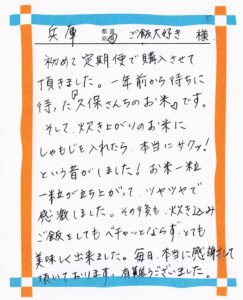 兵庫 都道府県 ご飯大好き 様
初めて定期便で購入させて
頂きました。一年前から待ちに
待った『久保さんちのお米』です。
そして、炊き上がりのお米に
しゃもじを入れたら、本当にサクッ!
という音がしました!お米一粒
一粒が立ち上がって、ツヤツヤで
感激しました。その後も、炊き込み
ご飯をしてもベチャッとならず、とても
美味しく出来ました。毎日、本当に感謝して
頂いております。有難うございました。